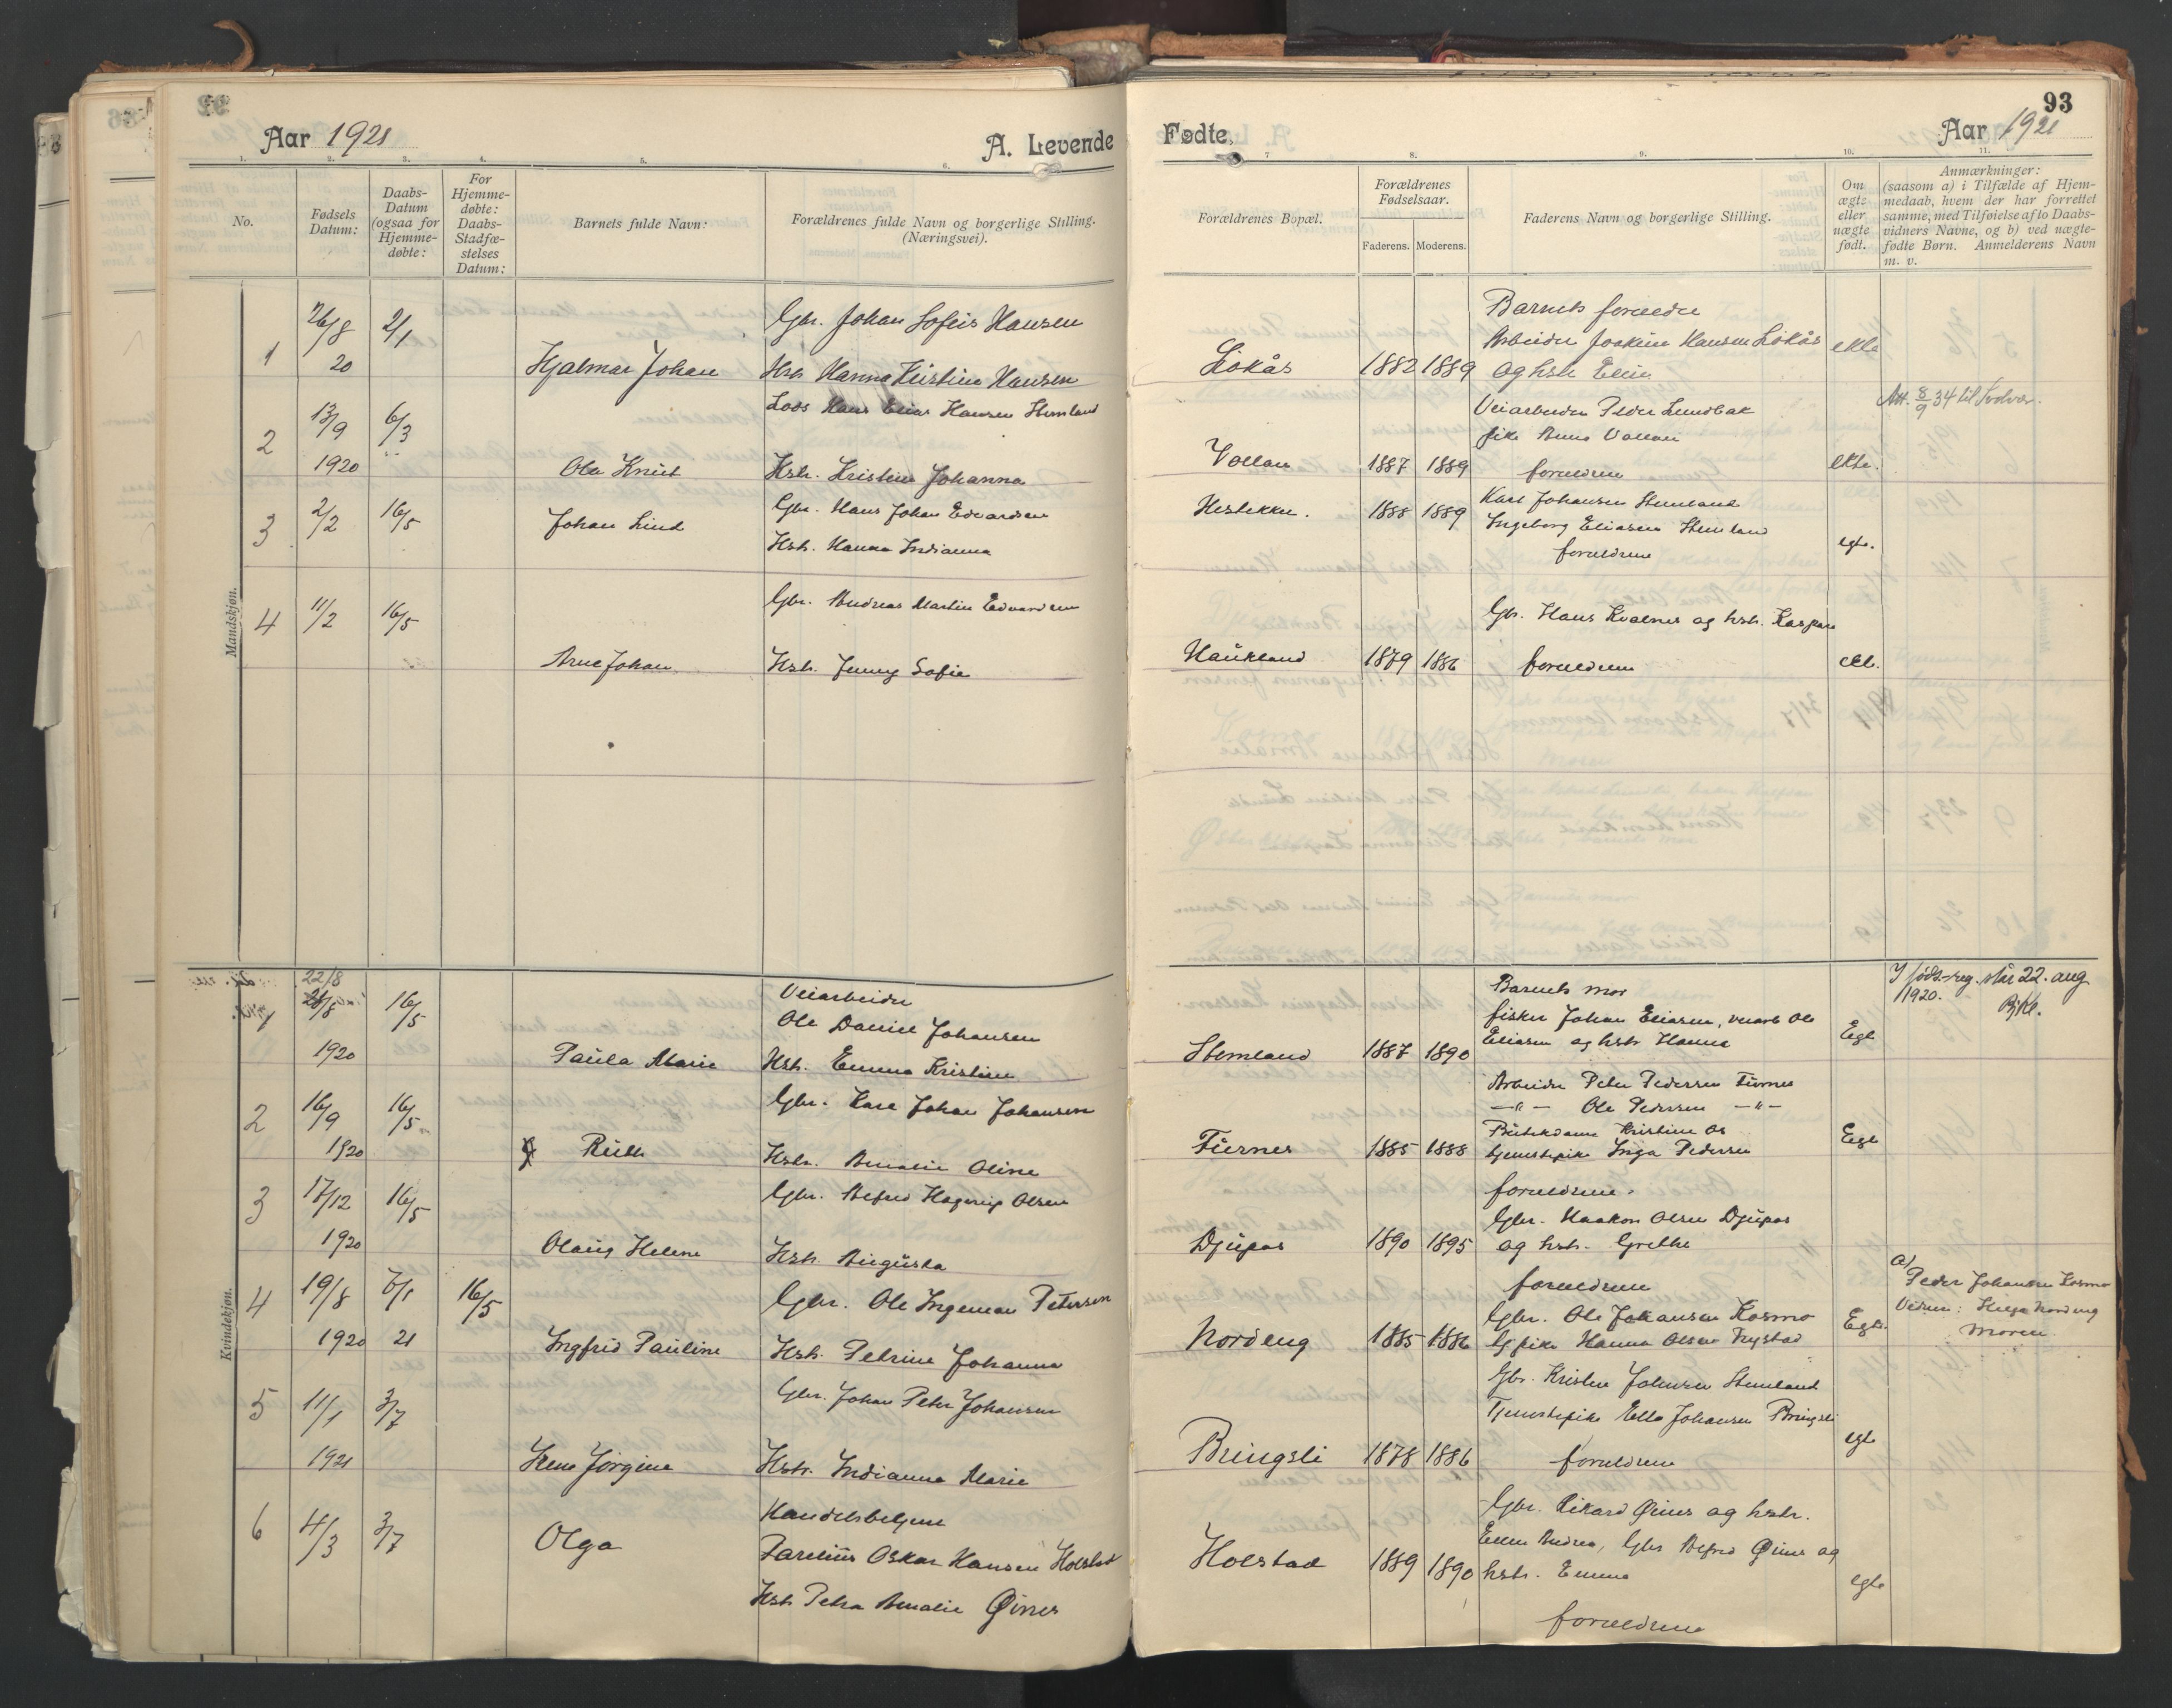 Aar 1921
A. Levende
1. 2. 3. 4. 5. 6.
No.
Fødsels Datum:
Daabs-Datum (ogsaa for Hjemme-døbte:
For Hjemme-døbte: Daabs-Stadfæ-stelses Datum:
Barnets fulde Navn:
Forældrenes fulde Navn og borgerlige Stilling. (Næringsvei).
Mandskjøn.
1 26/8 20 2/1 Hjalmar Johan
Gbr. Johan Hansen
Hst. Hanna Kristine Hansen
2 13/9 1920 6/3 Ola Knut
Lods Hans Elias Hansen Stemland
Hstr. Kristine Johanna
3 2/2 16/5 Johan Lind
Gbr. Hans Johan Edvardsen
Hstr. Hanna Indianna
4 11/2 16/5 Arne Johan
Gbr. Andreas Martin Edvardsen
Hstr. Jenny Sofie
Kvindekjøn.
22/8
1 1920 16/5 Paula Marie
Veiarbeider
Ole Daniel Johansen
Hstr. Emma Kristine
2 16/9 1920 16/5 Ruth
Gbr. Karl Johan Johansen
Hstr. Amalie Oline
3 17/12 1920 16/5 Olaug Helene
Gbr. Alfred Hagerup Olsen
Hstr. Augusta
4 19/8 1920 21 16/5 Ingfrid Pauline
Gbr. Ole Ingeman Petersen
Hstr. Petrine Johanna
5 11/1 1921 3/7 Irene Jørgine
Gbr. Johan Peter Johansen
Hstr. Indianna Marie
6 4/3 3/7 Olga
Handelsbetjent
Parelius Oskar Hansen Holstad
Hstr Petra Amalie Øines
Fødte.
Aar 1921
93
7 8. 9. 10. 11.
Forældrenes Bopæl.
Forældrenes Fødselsaar.
Faderens. Moderens.
Faderens Navn og borgerlige Stilling.
Om ægte eller uægte født.
Anmærkninger: (saasom a) i Tilfælde af Hjem-medaab, hvem der har forrettet samme, med Tilføielse af to Daabs-vidners Navne, og b) ved uægte-fødte Børn. Anmelderens Navn m. v.
Barnets foreldre
Arbeider Joakim Hansen Løkås
Løkås 1882 1889 og hstr Elin ekte
Veiarbeider Peder Lundbak
Att. 8/9 34 til Svolvær.
pike Anna Vollan
Vollan 1887 1889 foreldrene ekte.
Karl Johansen Stemland
1888 1889
Ingeborg Eliasen Stemland
foreldrene egte.
Gbr. Hans Kvalnes og hstr.
Haukland 1879 1886 foreldrene ekte.
Barnets mor
I føds.-reg. står 22. aug 1920.
fisker Johan Eliasen, veiarb Ole
Stemland 1887 1890 Eliasen og hstr Hanna Egte
Arbeider Peter Pedersen
—"— Ole Pedersen —"—
Butikdame Kristine Os
1885 1888 tjenestepike Inga Pedersen Egte
foreldrene.
Gbr. Haakon Olsen Djupos
Djupos 1890 1895 og hstr. Grethe
foreldrene
a) Peder Johansen Kosmo
Gbr. Ole Johansen Kosmo
Vidner: Helga Nordeng
Nordeng 1885 1886 pike Hanna Olsen Nystad Egte.
Moren.
Gbr. Kristen Johnsen Stemland
Tjenestepike Ella Johansen Bringsli
Bringsli 1878 1886 foreldrene egte
Gbr. Rikard Øines og hstr.
Ellen Andrea, Gbr Alfred Øines og
Holstad 1889 1890 hstr. Emma egte
foreldrene